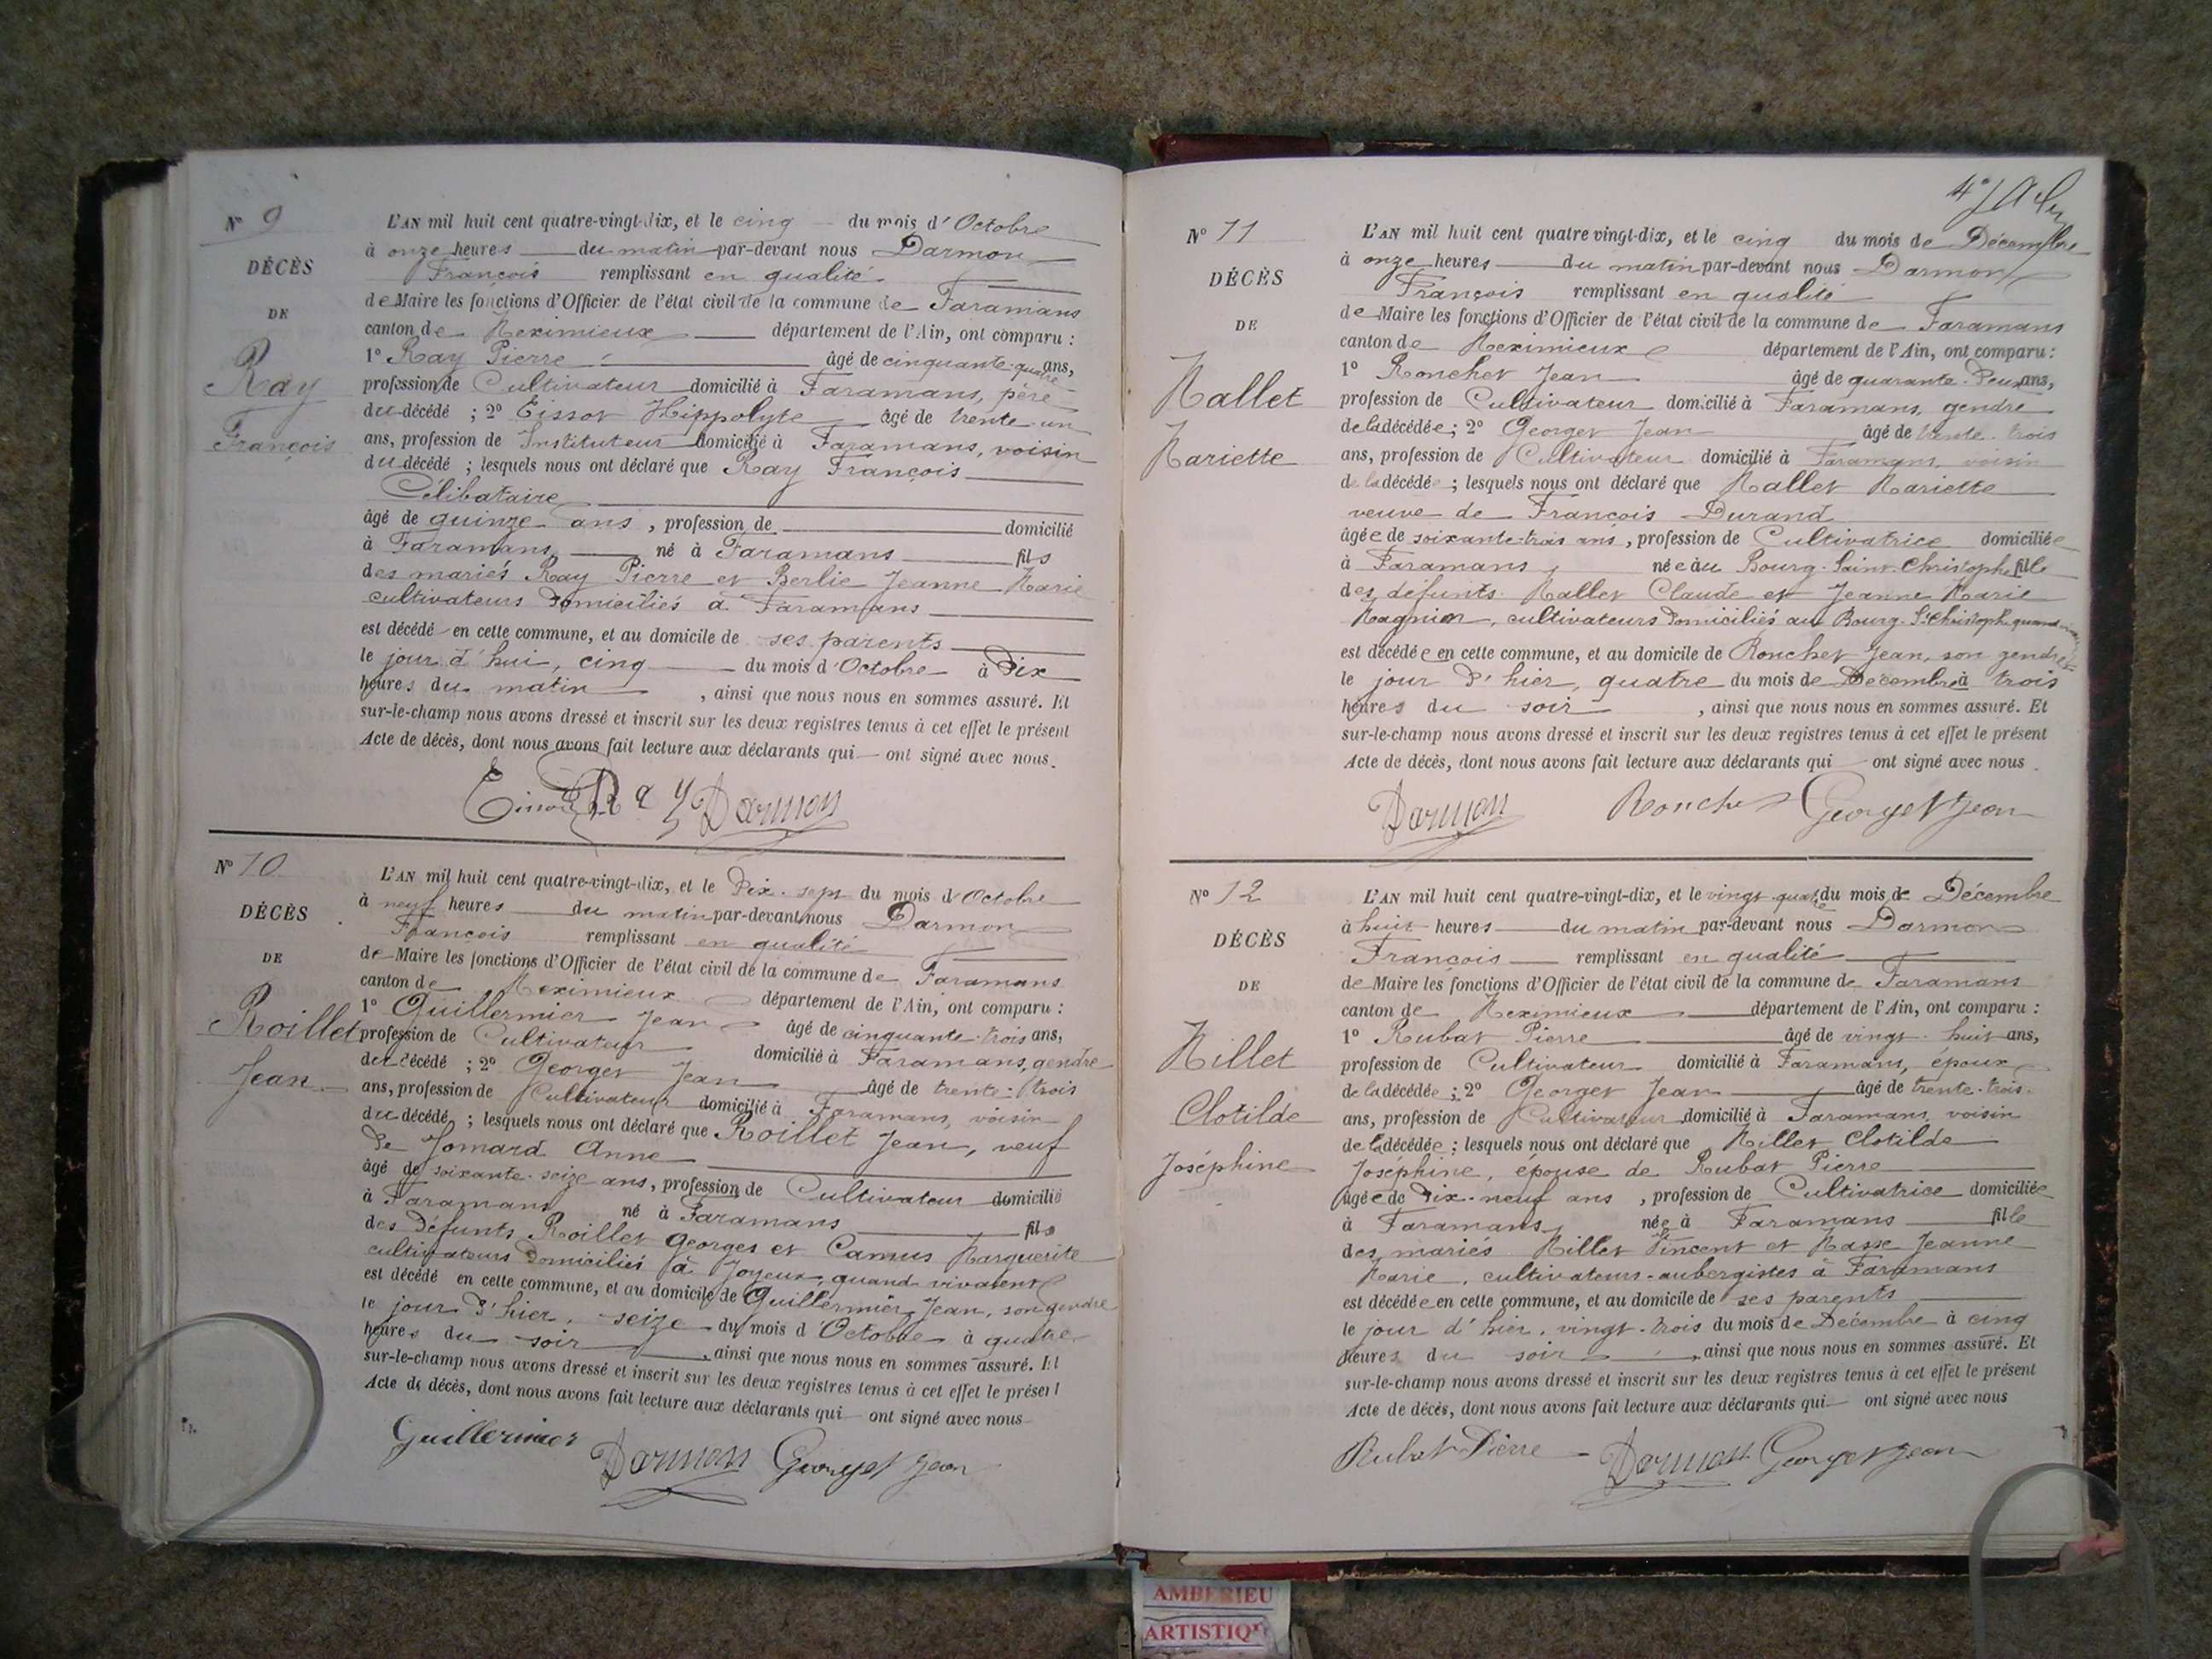 N° 9
DÉCÈS
DE
Ray
François
L'AN mil huit cent quatre-vingt-dix, et le cinq du mois d'Octobre
à onze heures du matin par-devant nous Darmon
François remplissant en qualité
de Maire les fonctions d'Officier de l'état civil de la commune de Faramans
canton de Meximieux département de l'Ain, ont comparu :
1° Ray Pierre âgé de cinquante-quatre ans,
profession de Cultivateur domicilié à Faramans, père
du décédé ; 2° Tissot Hippolyte âgé de trente-un
ans, profession de Instituteur domicilié à Faramans, voisin
du décédé ; lesquels nous ont déclaré que Ray François
Célibataire
âgé de quinze ans, profession de domicilié
à Faramans, né à Faramans fils
des mariés Ray Pierre et Berlie Jeanne Marie
cultivateurs domiciliés à Faramans
est décédé en cette commune, et au domicile de ses parents
le jour d'hui, cinq du mois d'Octobre à dix
heures du matin, ainsi que nous nous en sommes assuré. Et
sur-le-champ nous avons dressé et inscrit sur les deux registres tenus à cet effet le présent
Acte de décès, dont nous avons fait lecture aux déclarants qui ont signé avec nous.
Tissot Ray Darmon
N° 10
DÉCÈS
DE
Roillet
Jean
L'AN mil huit cent quatre-vingt-dix, et le dix-sept du mois d'Octobre
à neuf heures du matin par-devant nous Darmon
François remplissant en qualité
de Maire les fonctions d'Officier de l'état civil de la commune de Faramans
canton de Meximieux département de l'Ain, ont comparu :
1° Guillermier Jean âgé de cinquante-trois ans,
profession de Cultivateur domicilié à Faramans, gendre
du décédé ; 2° Georget Jean âgé de trente-trois
ans, profession de Cultivateur domicilié à Faramans, voisin
du décédé ; lesquels nous ont déclaré que Roillet Jean, veuf
de Jomard Anne
âgé de soixante-seize ans, profession de Cultivateur domicilié
à Faramans né à Faramans fils
des défunts Roillet Georges et Camus Marguerite
cultivateurs domiciliés à Joyeux, quand vivaient
est décédé en cette commune, et au domicile de Guillermier Jean, son gendre
le jour d'hier, seize du mois d'Octobre à quatre
heures du soir, ainsi que nous nous en sommes assuré. Et
sur-le-champ nous avons dressé et inscrit sur les deux registres tenus à cet effet le présent
Acte de décès, dont nous avons fait lecture aux déclarants qui ont signé avec nous
Guillermier Darmon Georget Jean
N° 11
DÉCÈS
DE
Mallet
Mariette
L'AN mil huit cent quatre vingt-dix, et le cinq du mois de Décembre
à onze heures du matin par-devant nous Darmon
François remplissant en qualité
de Maire les fonctions d'Officier de l'état civil de la commune de Faramans
canton de Meximieux département de l'Ain, ont comparu :
1° Ronchet Jean âgé de quarante-deux ans,
profession de Cultivateur domicilié à Faramans, gendre
de la décédée ; 2° Georget Jean âgé de trente-trois
ans, profession de Cultivateur domicilié à Faramans, voisin
de la décédée ; lesquels nous ont déclaré que Mallet Mariette
veuve de François Durand
âgée de soixante-trois ans, profession de Cultivatrice domiciliée
à Faramans, née au Bourg-Saint-Christophe fille
des défunts Mallet Claude et Jeanne Marie
Magnien, cultivateurs domiciliés au Bourg-St-Christophe quand
est décédée en cette commune, et au domicile de Ronchet Jean, son gendre
le jour d'hier, quatre du mois de Décembre à trois
heures du soir, ainsi que nous nous en sommes assuré. Et
sur-le-champ nous avons dressé et inscrit sur les deux registres tenus à cet effet le présent
Acte de décès, dont nous avons fait lecture aux déclarants qui ont signé avec nous.
Darmon Ronchet Georget Jean
N° 12
DÉCÈS
DE
Millet
Clotilde
Joséphine
L'AN mil huit cent quatre-vingt-dix, et le vingt-quatre du mois de Décembre
à huit heures du matin par-devant nous Darmon
François remplissant en qualité
de Maire les fonctions d'Officier de l'état civil de la commune de Faramans
canton de Meximieux département de l'Ain, ont comparu :
1° Rubat Pierre âgé de vingt-huit ans,
profession de Cultivateur domicilié à Faramans, époux
de la décédée ; 2° Georget Jean âgé de trente-trois
ans, profession de Cultivateur domicilié à Faramans, voisin
de la décédée ; lesquels nous ont déclaré que Millet Clotilde
Joséphine, épouse de Rubat Pierre
âgée de dix-neuf ans, profession de Cultivatrice domiciliée
à Faramans, née à Faramans fille
des mariés Millet Vincent et Masse Jeanne
Marie, cultivateurs-aubergistes à Faramans
est décédée en cette commune, et au domicile de ses parents
le jour d'hier, vingt-trois du mois de Décembre à cinq
heures du soir, ainsi que nous nous en sommes assuré. Et
sur-le-champ nous avons dressé et inscrit sur les deux registres tenus à cet effet le présent
Acte de décès, dont nous avons fait lecture aux déclarants qui ont signé avec nous
Rubat Pierre Darmon Georget Jean
AMBERIEU
ARTISTIQ